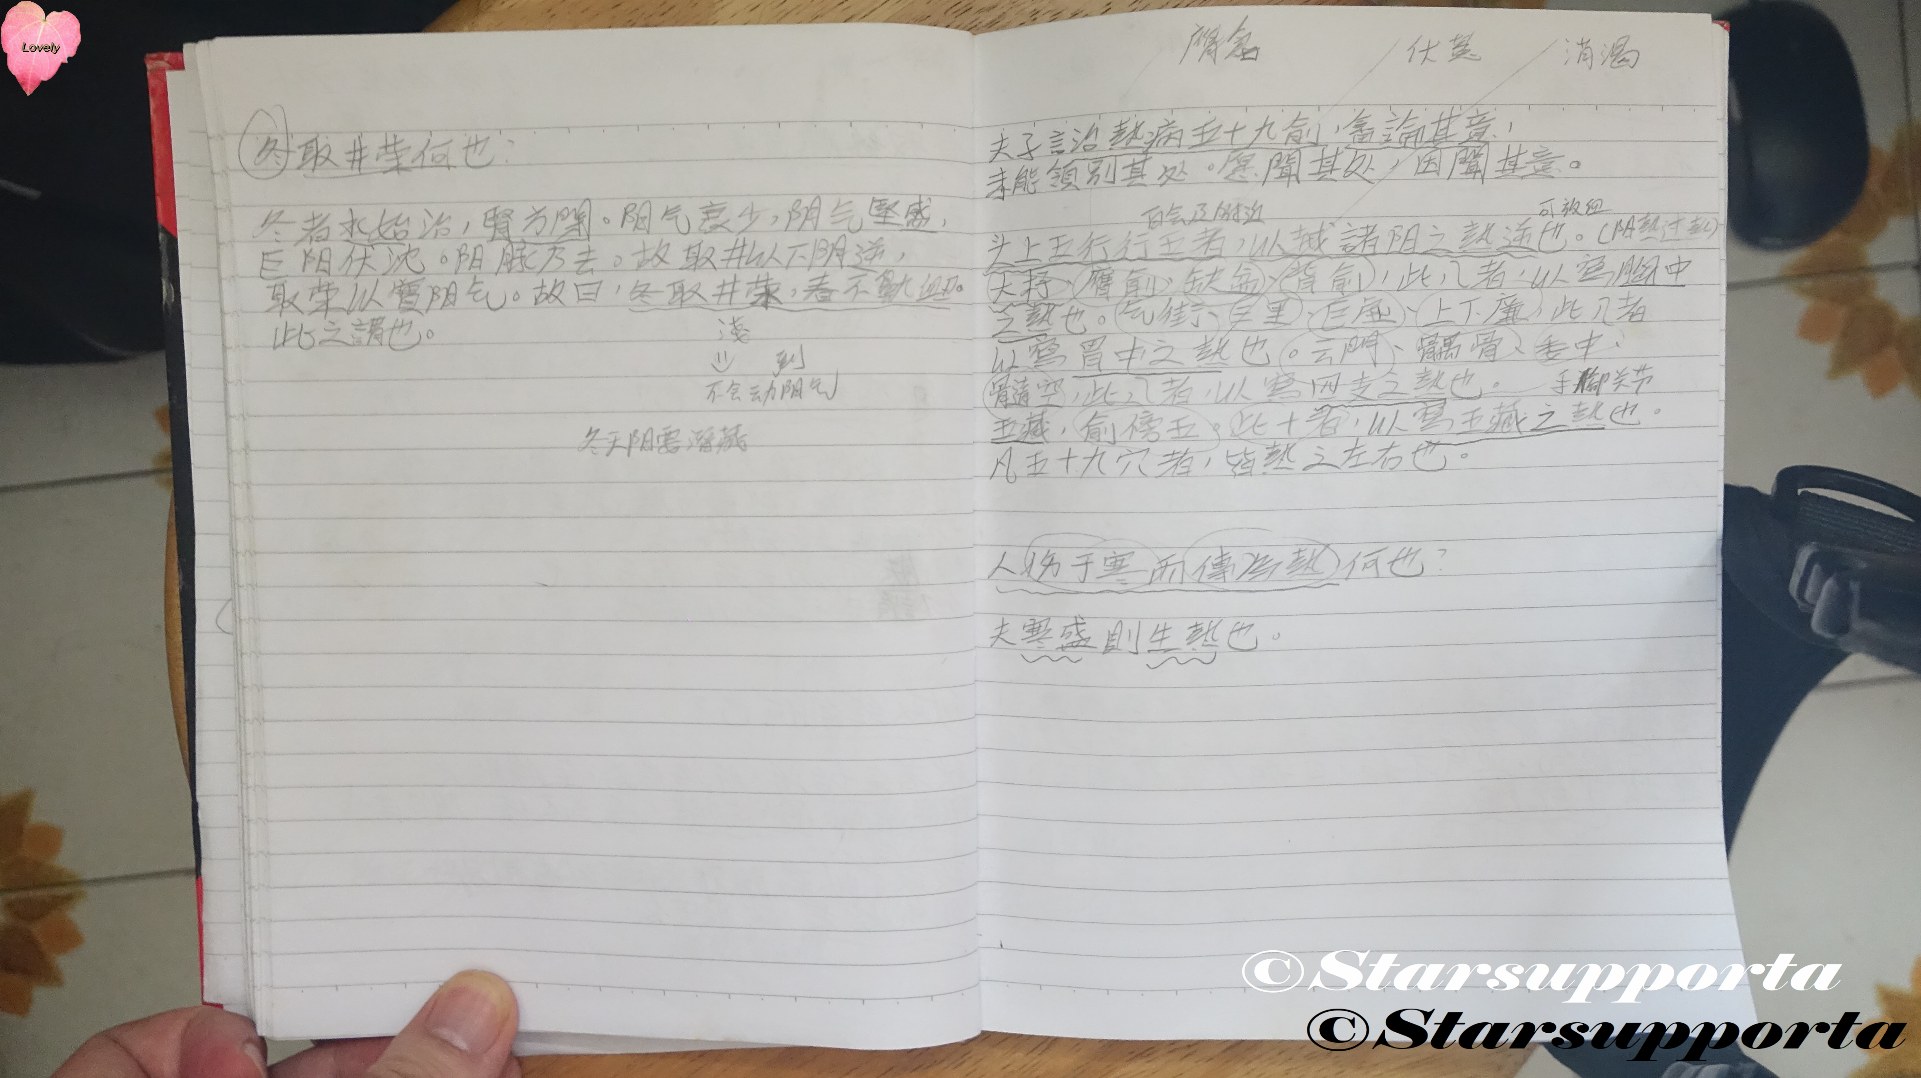 Lovely
冬取井荣何也?
冬者水始治,腎方閉。阳气衰少,阴气堅盛,
巨阳伏沈。阳脈乃去。故取井以下阴逆,
取荣以實阳气。故曰,冬取井荣,春不鼽衄。
此之謂也。
淺
到
不会动阳气
冬天阳要潜藏
伏瘓 消渴
夫子言治熱病五十九俞,畬論其意,
未能領別其处。愿聞其处,因聞其意。
百会及附近 可放血
头上五行行五者,以越諸阳之熱逆也。(阳熱过熱)
大抒、膺俞、缺盆、背俞,此八者,以寫胸中
之熱也。气街、三里、巨虛、上下廉,此八者
以寫胃中之熱也。云門、髃骨、委中、
髓空,此八者,以寫四支之熱也。 手脚关节
五藏,俞傍五。此十者,以寫五藏之熱也。
凡五十九穴者,皆熱之左右也。
人伤于寒而傳為熱何也?
夫寒盛則生熱也。
©Starsupporta
©Starsupporta